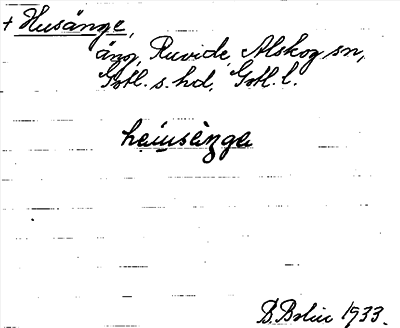 + Husänge,
äng, Ruvide, Alskog sn,
Gotl. s. hd, Gotl. l.
1933.